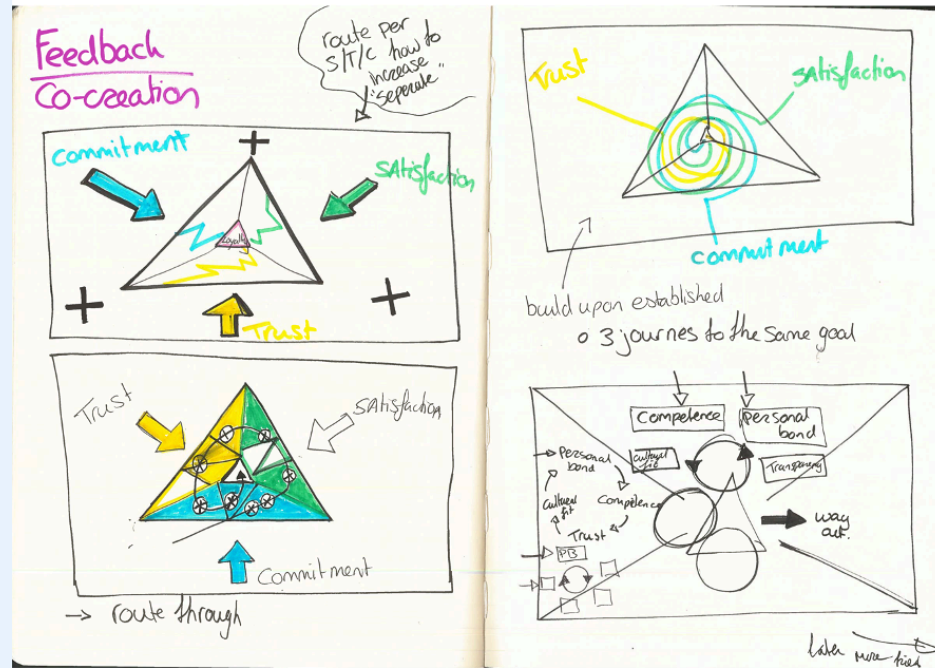 Feedback
Co-creation
route per
S/T/C how to
increase
"seperate"
Commitment
+
SAtisfaction
Loyalty
+
+
Trust
Trust
SAtisfaction
Commitment
→ route through
Trust
SAtisfaction
Commitment
build upon established
o 3 journeys to the same goal
Competence
Personal
bond
Cultural
fit
Transparency
Personal
bond
Cultural
fit
Competence
Trust
PB
way
out.
later more